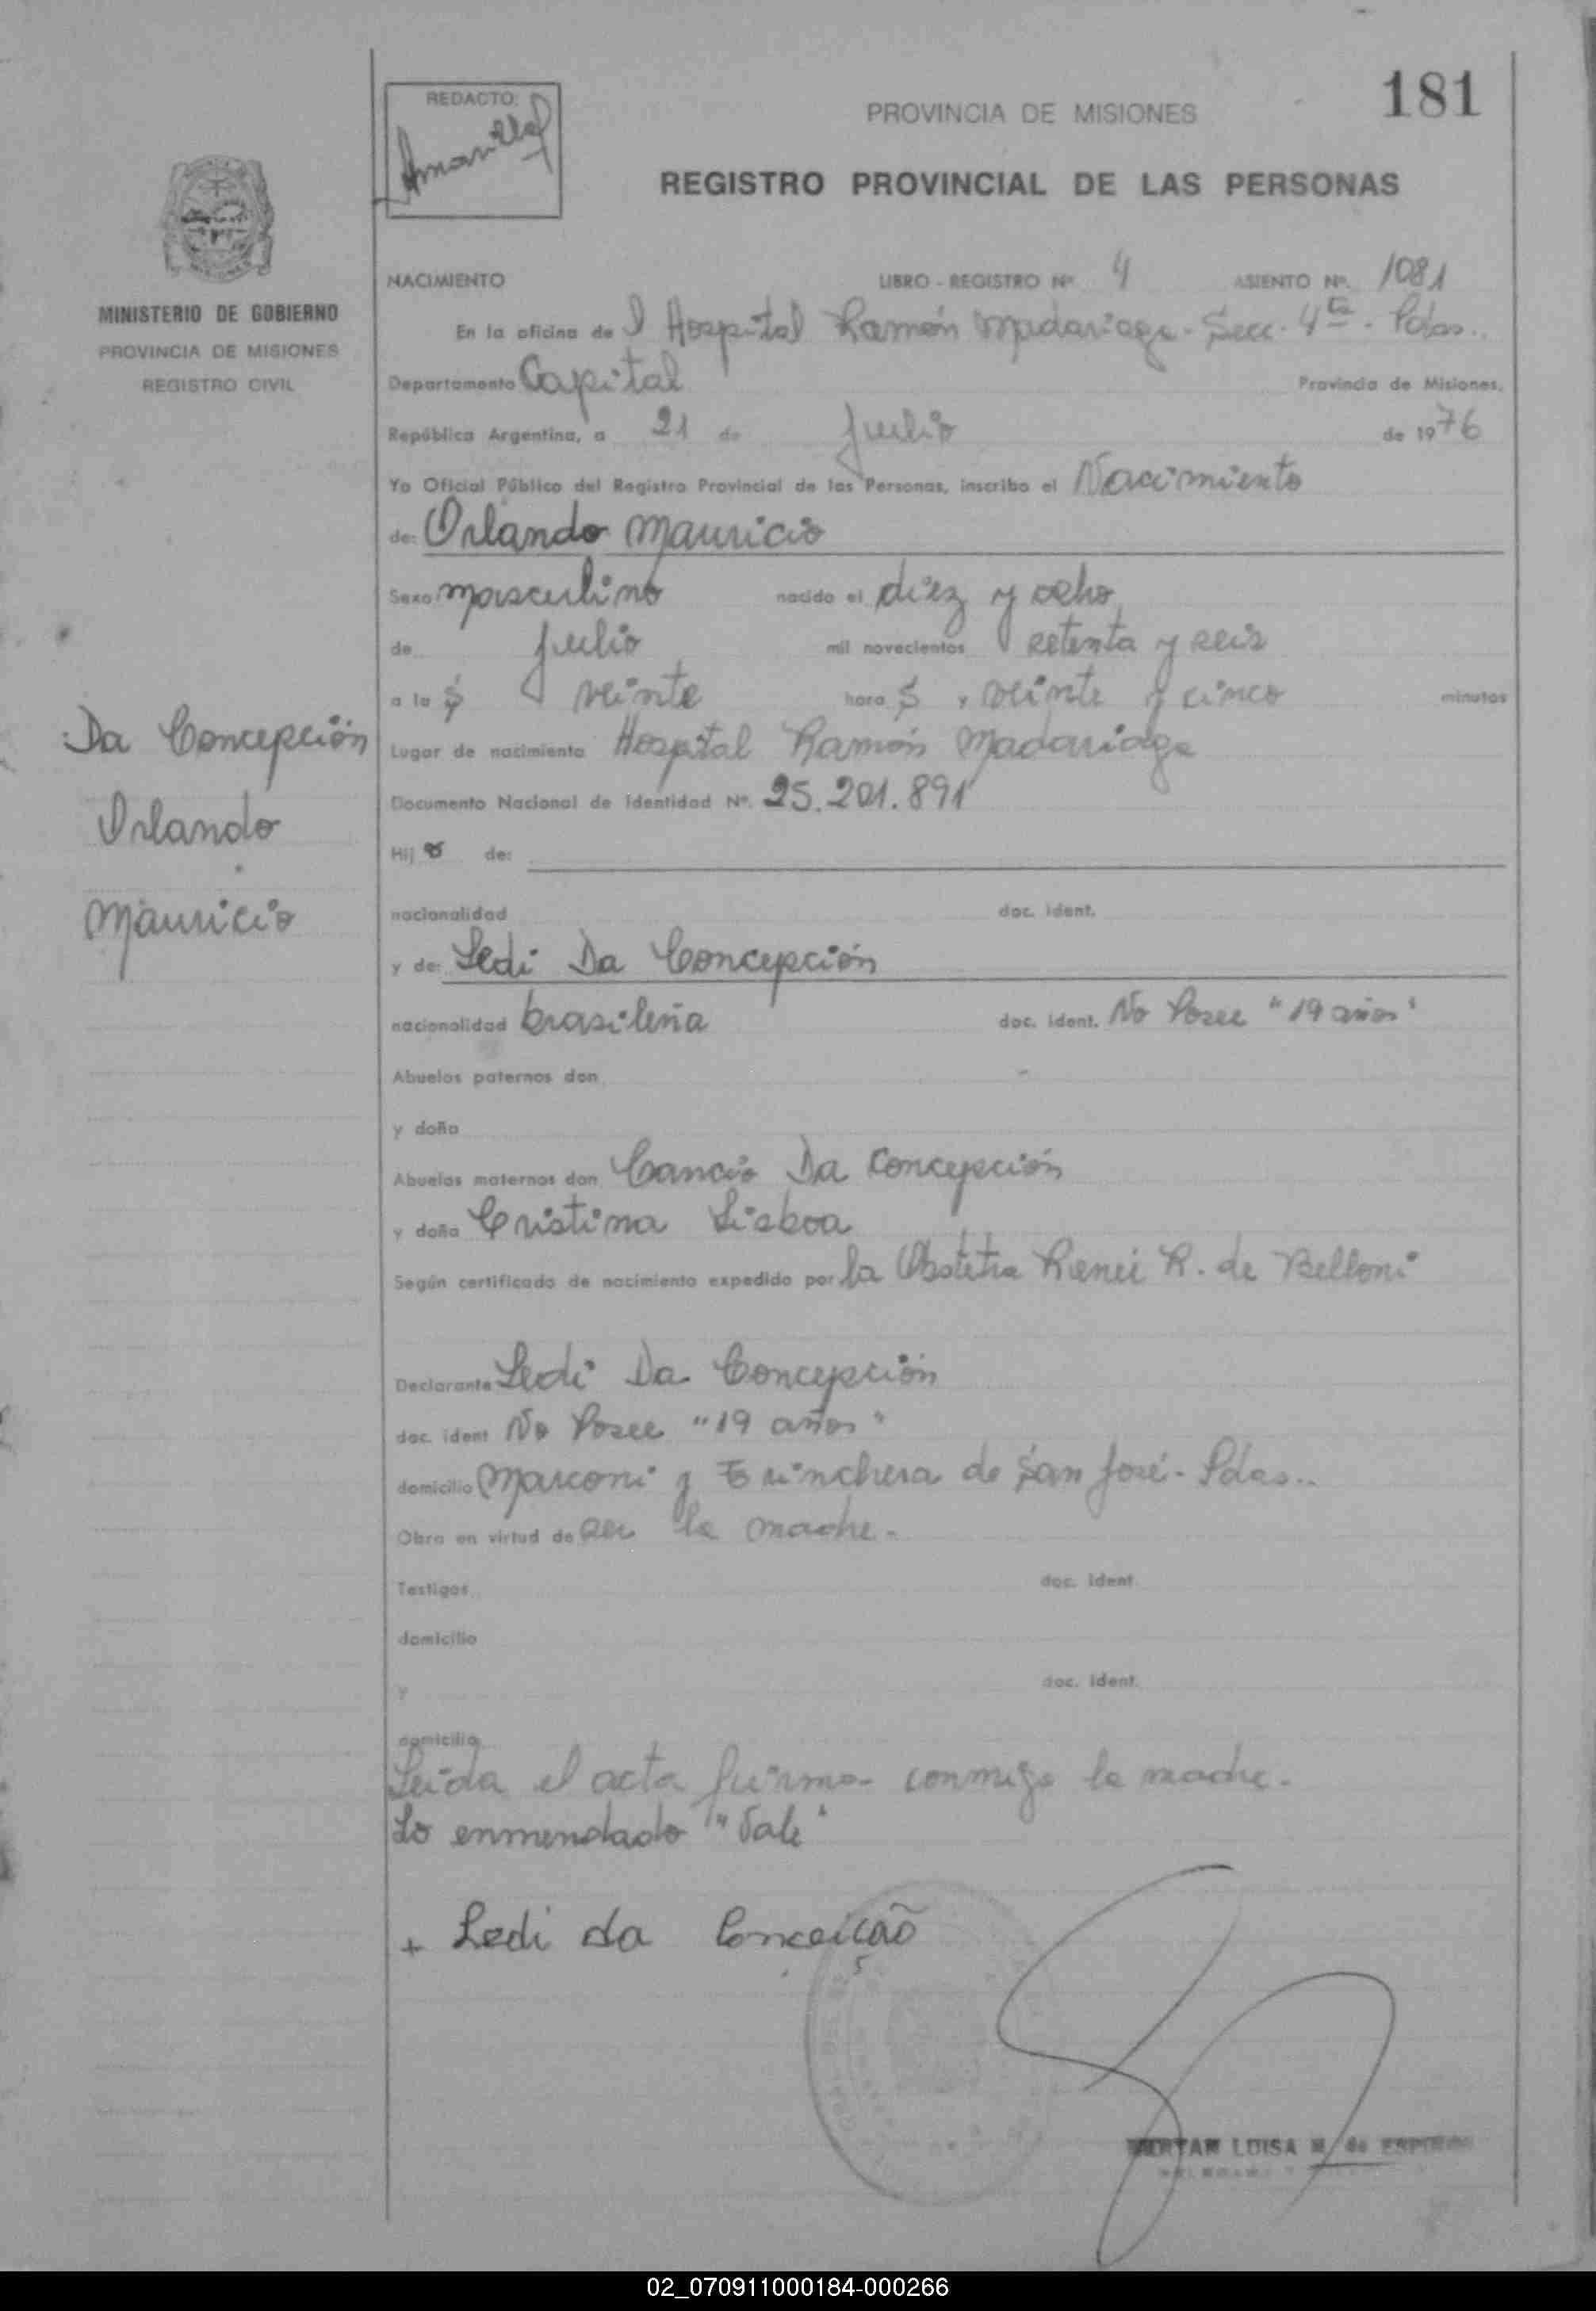 181
REDACTO:
PROVINCIA DE MISIONES
REGISTRO PROVINCIAL DE LAS PERSONAS
MINISTERIO DE GOBIERNO
PROVINCIA DE MISIONES
REGISTRO CIVIL
NACIMIENTO LIBRO - REGISTRO Nº 4 ASIENTO Nº. 1081
En la oficina de l Hospital Ramón Madariaga - Secc. 4ta - Pdas..
Departamento Capital Provincia de Misiones.
República Argentina, a 21 de Julio de 1976
Yo Oficial Público del Registro Provincial de las Personas, inscribo el Nacimiento
de: Orlando Mauricio
Sexo masculino nacido el diez y ocho
de Julio mil novecientos setenta y seis
a la s veinte hora s y veinte y cinco minutos
Da Concepción
Orlando
Mauricio
Lugar de nacimiento Hospital Ramón Madariaga
Documento Nacional de Identidad Nº. 25.201.891
Hij o de:
nacionalidad doc. ident.
y de: Ledi Da Concepción
nacionalidad brasileña doc. ident. No Posee "19 años"
Abuelos paternos don
y doña
Abuelos maternos don Cancio Da Concepción
y doña Cristina Lisboa
Según certificado de nacimiento expedido por la Obstetra Reneé R. de Belloni
Declarante Ledi Da Concepción
doc. ident No Posee "19 años"
domicilio Marconi y Trinchera de San José - Pdas..
Obra en virtud de ser la madre.-
Testigos doc. ident.
domicilio
y doc. ident.
domicilio
Leida el acta firma conmigo la madre.-
Lo enmendado "Vale"
+ Ledi da Conceição
LUISA M. de
02_070911000184-000266